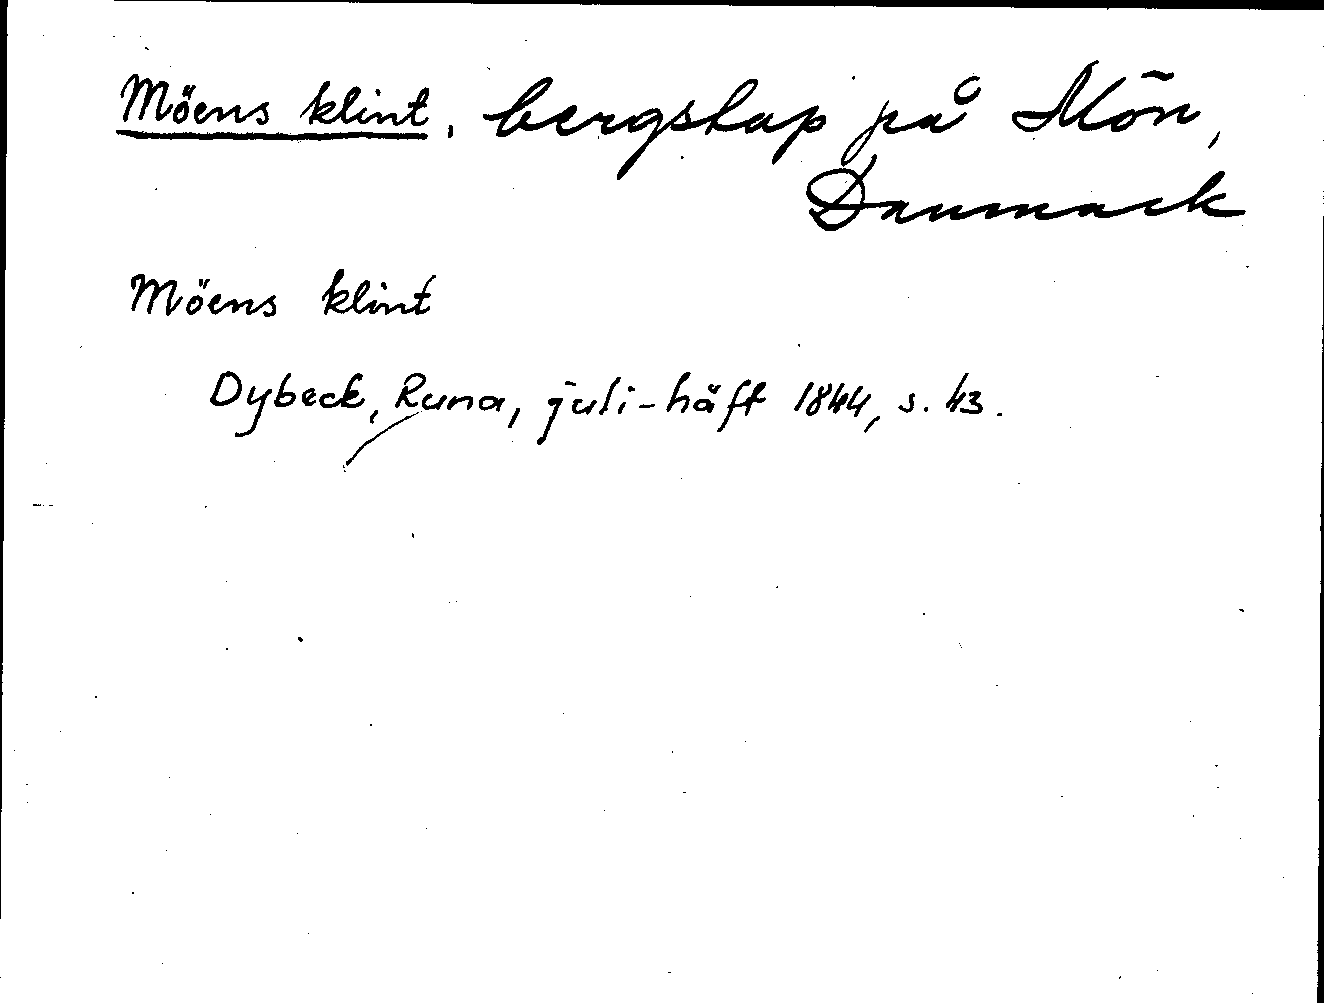 Möens klint, bergstup på Mön,
Danmark
Möens klint
Dybeck, Runa, juli-häft 1844, s. 43.